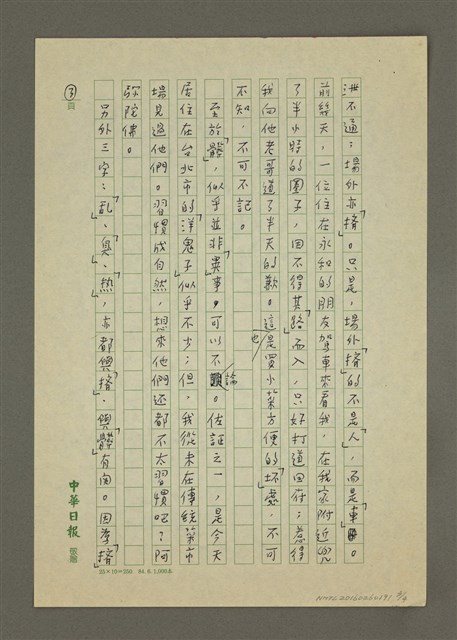 泄不通；場外亦「擠」。只是，場外「擠」的不是「人」，而是「車」。
前幾天，一位住在永和的朋友駕車來看我，在我家附近兜
了半小時的圈子，因不得其「路」而入，只好打道回府；惹得
我向他老哥道了半天的歉。這也是買小菜方便的「坏」處，不可
不知，不可不記。
至於「髒」，似乎並非「異事」，可以不論。佐証之一，是今天
居住在台北市的「洋鬼子」似乎不少；但，我從未在傳統菜市
場見過他們。習慣成自然，想來他們還都不太習慣吧？阿
弥陀佛。
另外三字：「乱」、「臭」、「热」，亦都與「擠」、與「髒」有関。因為「擠」
③
頁
中華日報
稿紙
25×10=250 84.6.1,000本
NMTL20160260191 3/4